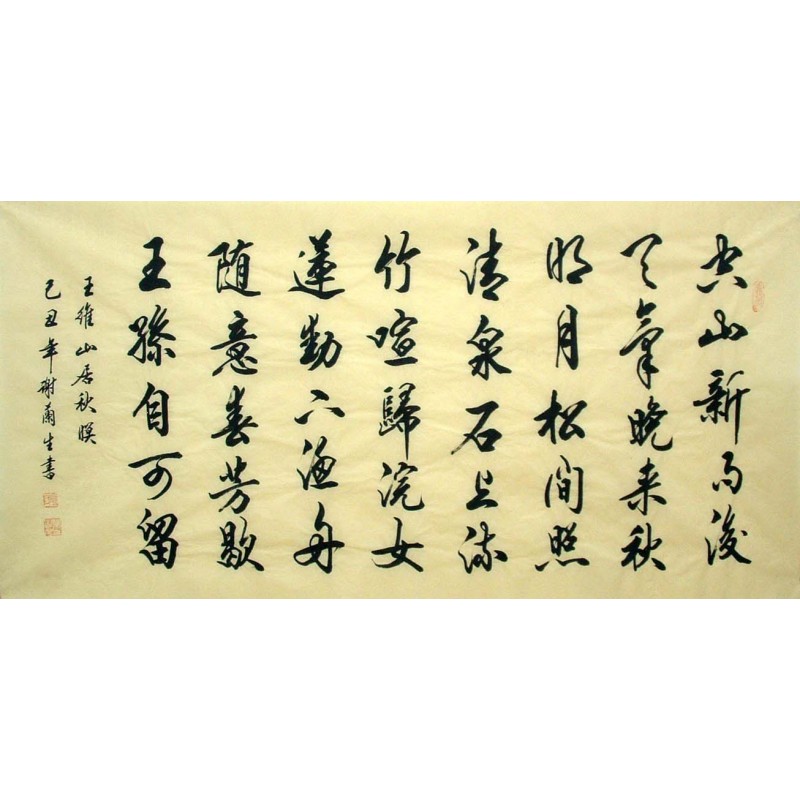 空山新雨後
天氣晚来秋
明月松間照
清泉石上流
竹喧歸浣女
蓮動下漁舟
随意春芳歇
王孫自可留
王維山居秋暝
己丑年謝蘭生書